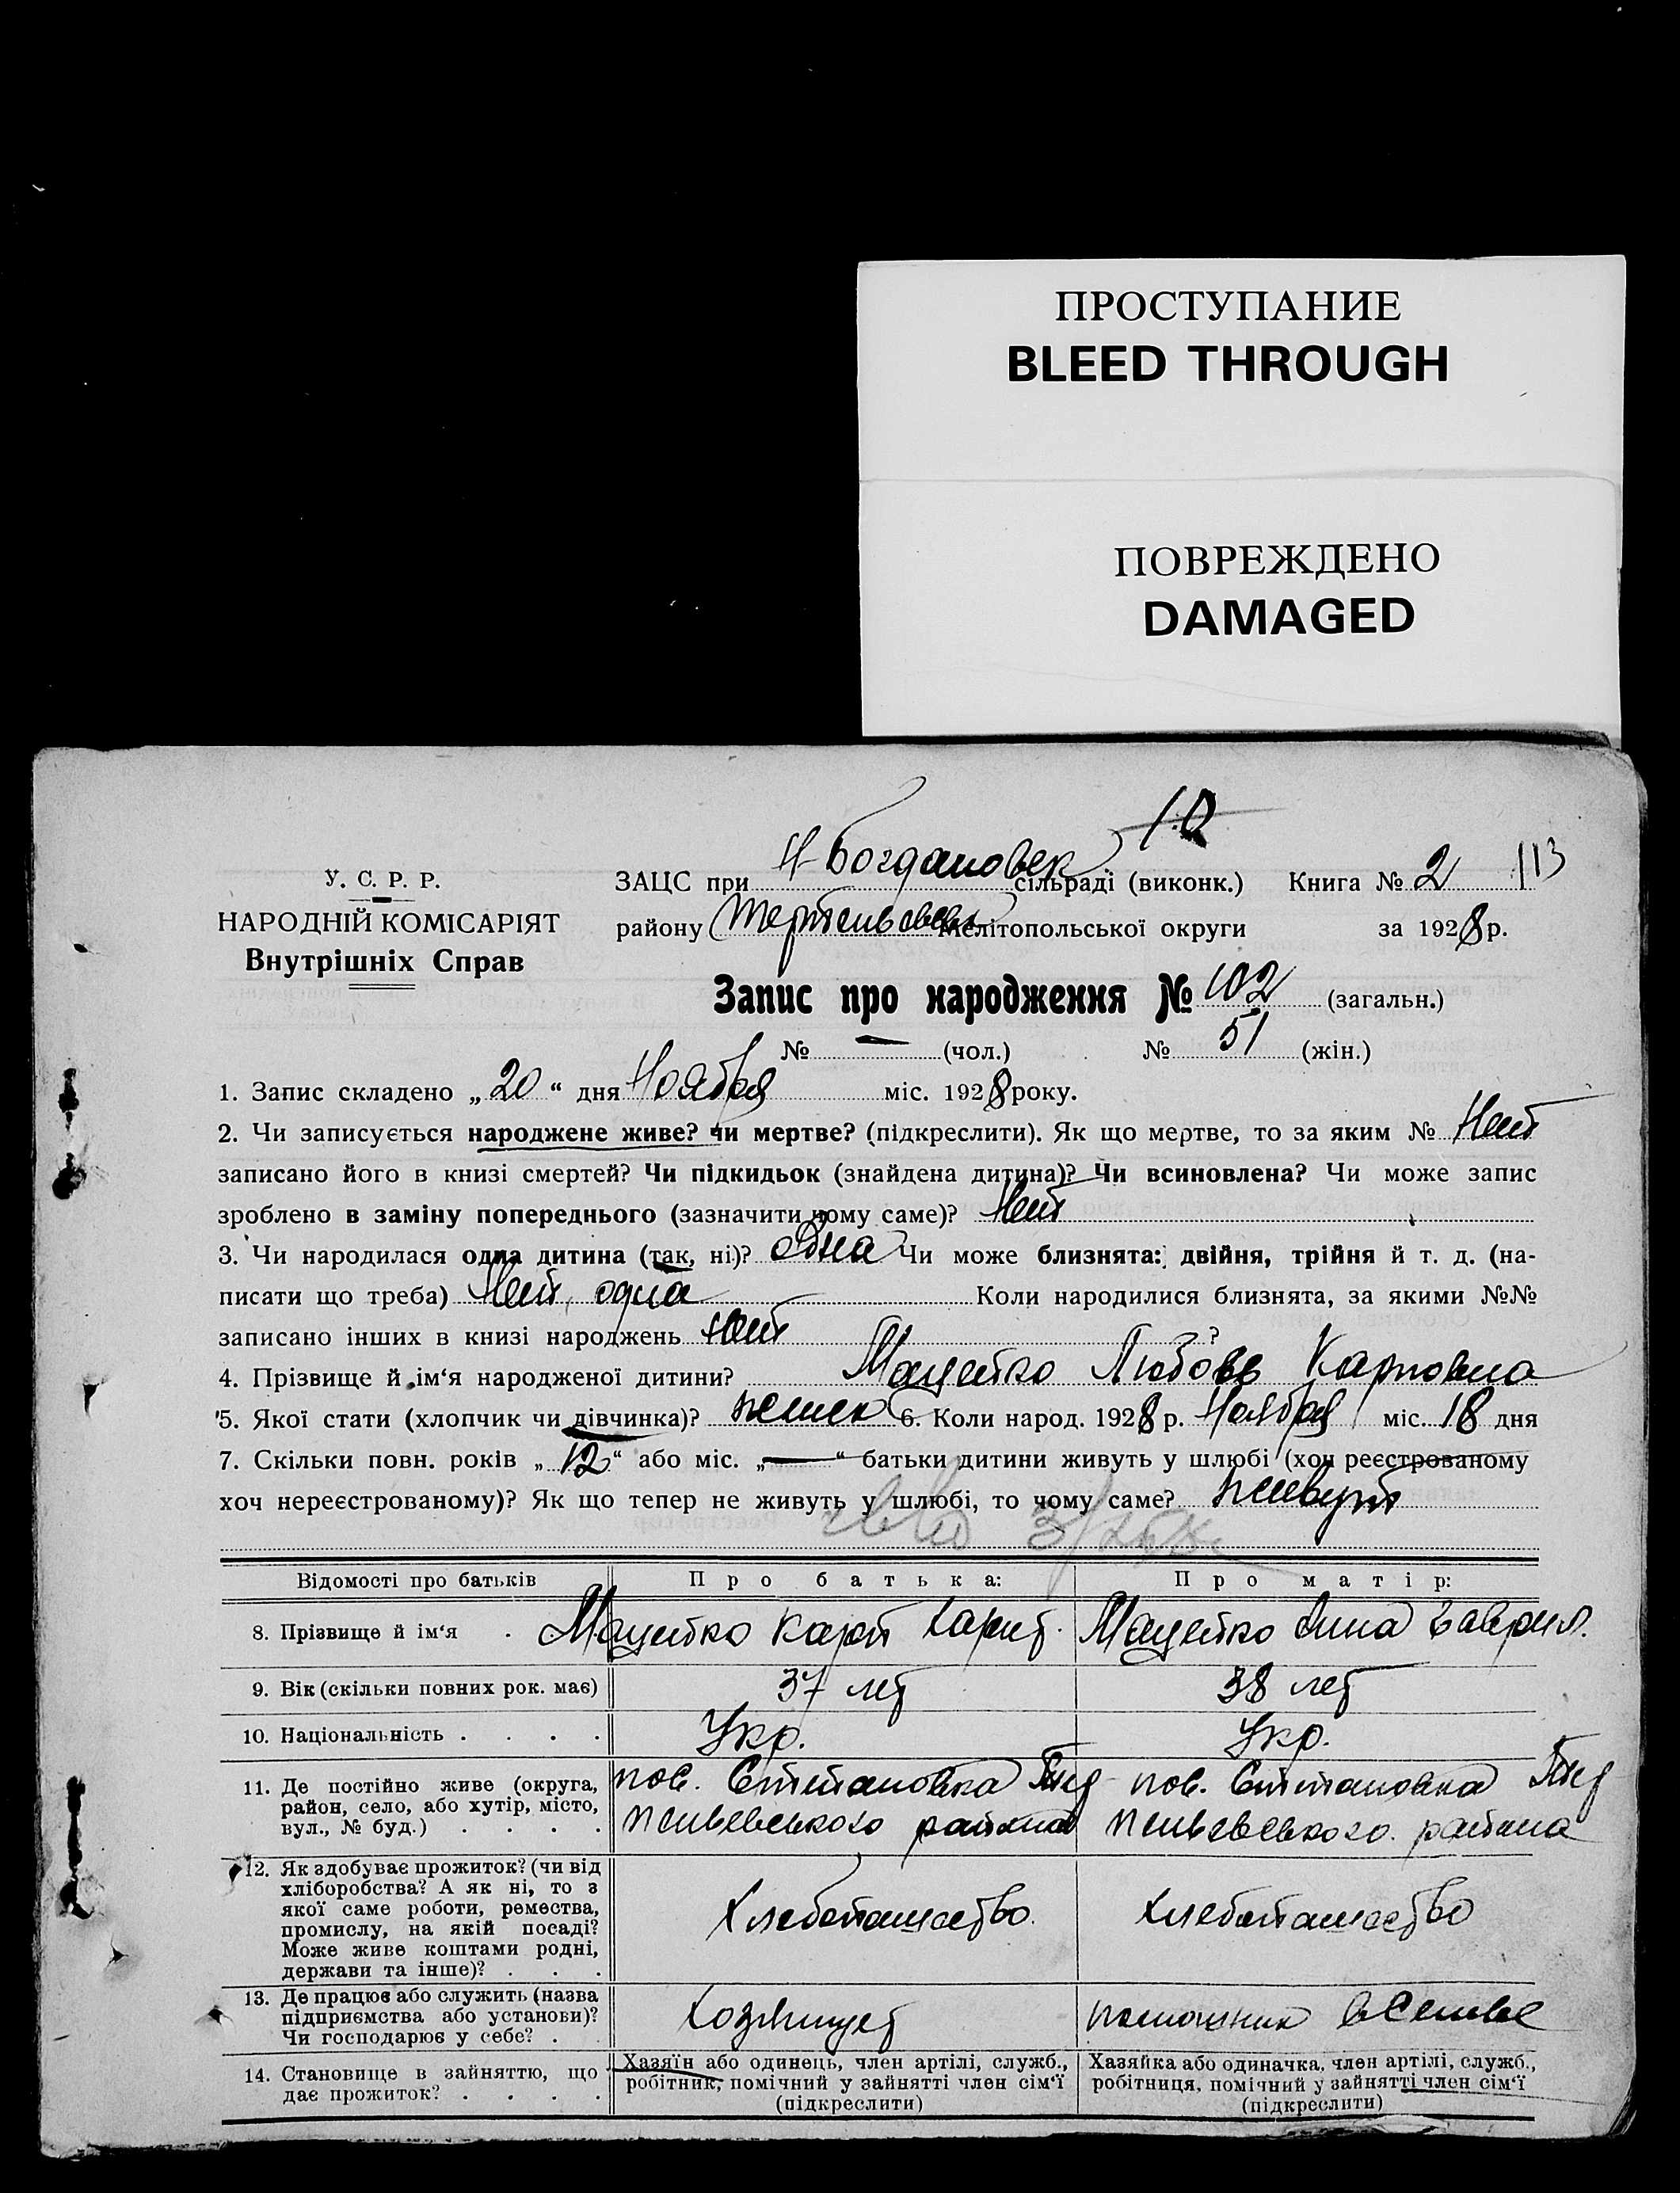 ПРОСТУПАНИЕ
BLEED THROUGH
ПОВРЕЖДЕНО
DAMAGED
У. С. Р. Р.
НАРОДНІЙ КОМІСАРІЯТ
Внутрішніх Справ
ЗАЦС при Н-Богдановск сільраді (виконк.) Книга № 2 113
району Мелітопольської округи за 1928 р.
Запис про народження № 102 (загальн.)
№ — (чол.) № 51 (жін.)
1. Запис складено „20“ дня Ноября міс. 1928 року.
2. Чи записується народжене живе? чи мертве? (підкреслити). Як що мертве, то за яким № Нет
записано його в книзі смертей? Чи підкидьок (знайдена дитина)? Чи всиновлена? Чи може запис
зроблено в заміну попереднього (зазначити чому саме)? Нет
3. Чи народилася одна дитина (так, ні)? одна Чи може близнята: двійня, трійня й т. д. (на-
писати що треба) Нет, одна Коли народилися близнята, за якими №№
записано інших в книзі народжень нет ?
4. Прізвище й ім‘я народженої дитини? Мацейко Любовь Карповна
5. Якої стати (хлопчик чи дівчинка)? женск 6. Коли народ. 1928 р. Ноября міс. 18 дня
7. Скільки повн. років „12“ або міс. „—“ батьки дитини живуть у шлюбі (хоч реєстрованому
хоч нереєстрованому)? Як що тепер не живуть у шлюбі, то чому саме? живут
Відомості про батьків Про батька: Про матір:
8. Прізвище й ім‘я . Мацейко Карп Харит. Мацейко Анна Гаврил.
9. Вік (скільки повних рок. має) 37 лет 38 лет
10. Національність . . . . Укр. Укр.
11. Де постійно живе (округа,
район, село, або хутір, місто,
вул., № буд.) . . . .
пос. Степановка
района
пос. Степановка
района
12. Як здобуває прожиток? (чи від
хліборобства? А як ні, то з
якої саме роботи, ремества,
промислу, на якій посаді?
Може живе коштами родні,
держави та інше)? . . .
Хлебопашество.
Хлебопашество
13. Де працює або служить (назва
підприємства або установи)?
Чи господарює у себе? . .
Хозяинует
помощник в семье
14. Становище в зайняттю, що
дає прожиток? . . . .
Хазяїн або одинець, член артілі, служб.,
робітник, помічний у зайнятті член сім‘ї
(підкреслити)
Хазяйка або одиначка, член артілі, служб.,
робітниця, помічний у зайнятті член сім‘ї
(підкреслити)